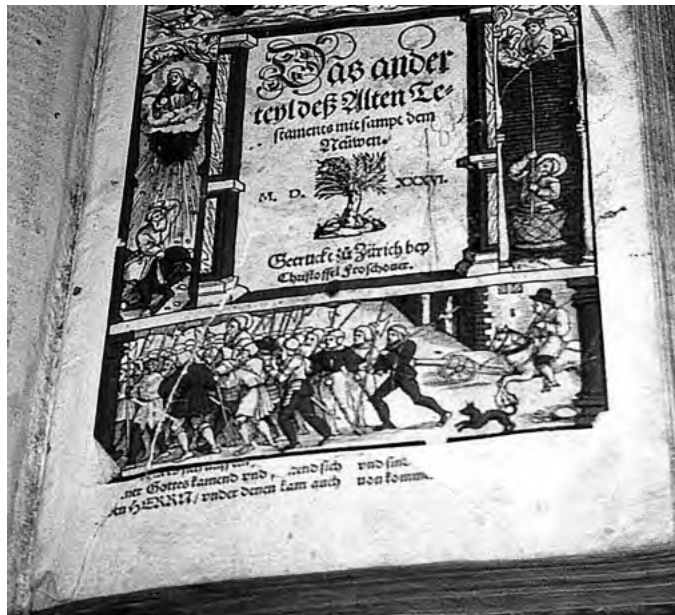 Das ander
teyl deß Alten Te-
staments mit sampt dem
Neüwen.
M. D. XXXVI.
Getruckt zů Zürich bey
Christoffel Froschouer.
Gottes kamend vnd sich vnd sind
HERRN / vnder denen kam auch von